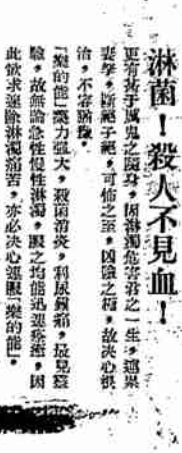 淋菌！殺人不見血！
更有甚于厲鬼之隨身，因淋濁危害君之一生，遺累
妻孥，斬絕子絕，可怖之至，凶險之極，故决心根
治，不容猶豫。
「樂的能」藥力强大，殺菌消炎，利尿鎮痛，最見靈
驗，故無論急性慢性淋濁，服之均能迅速痊癒，因
此欲求速除淋濁痛苦，亦必决心速服「樂的能」。